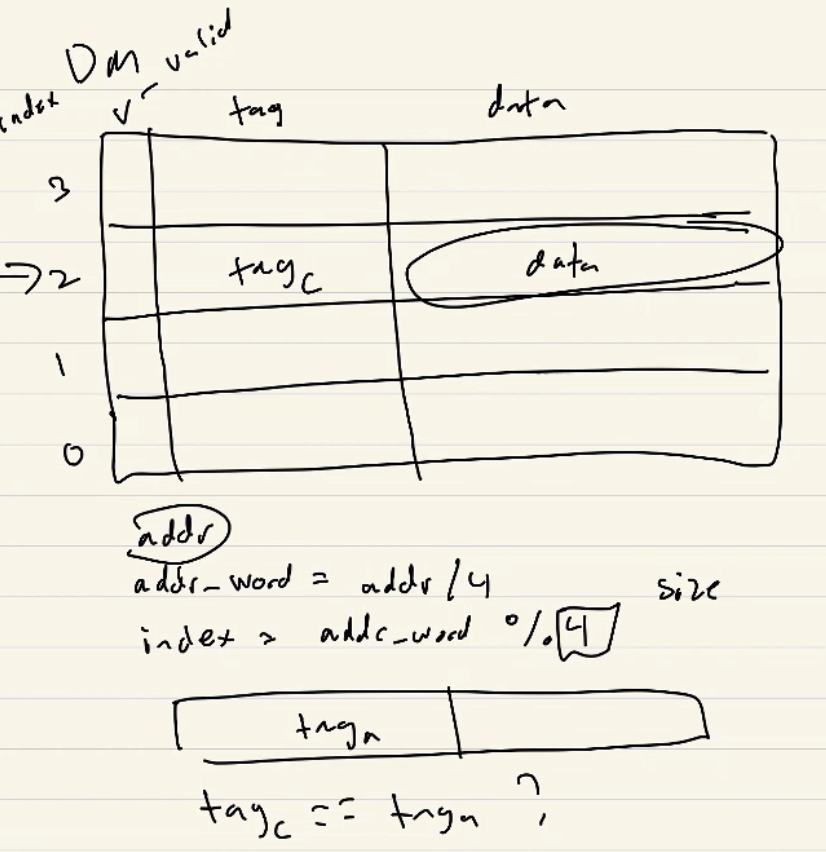 DM valid
index v tag data
3
⇒ 2 tag_c data
1
0
addr
addr_word = addr / 4 size
index = addr_word % 4
tag_a
tag_c == tag_a ?